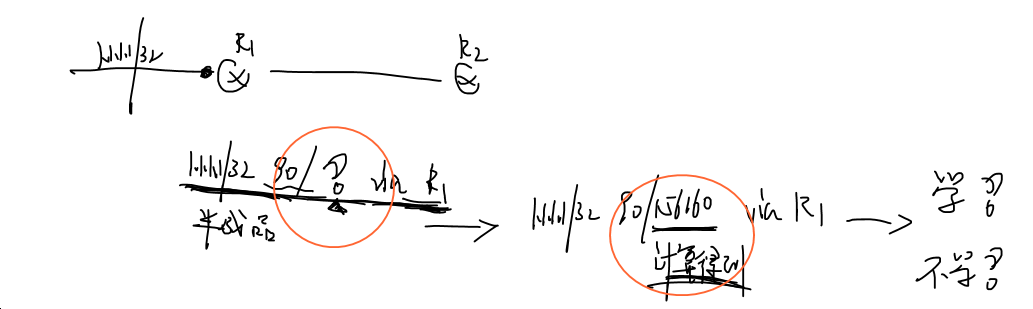 1.1.1.1/32
R1
R2
1.1.1.1/32 90/? via R1
半成品
1.1.1.1/32 90/156160 via R1
计算得到
学?
不学?